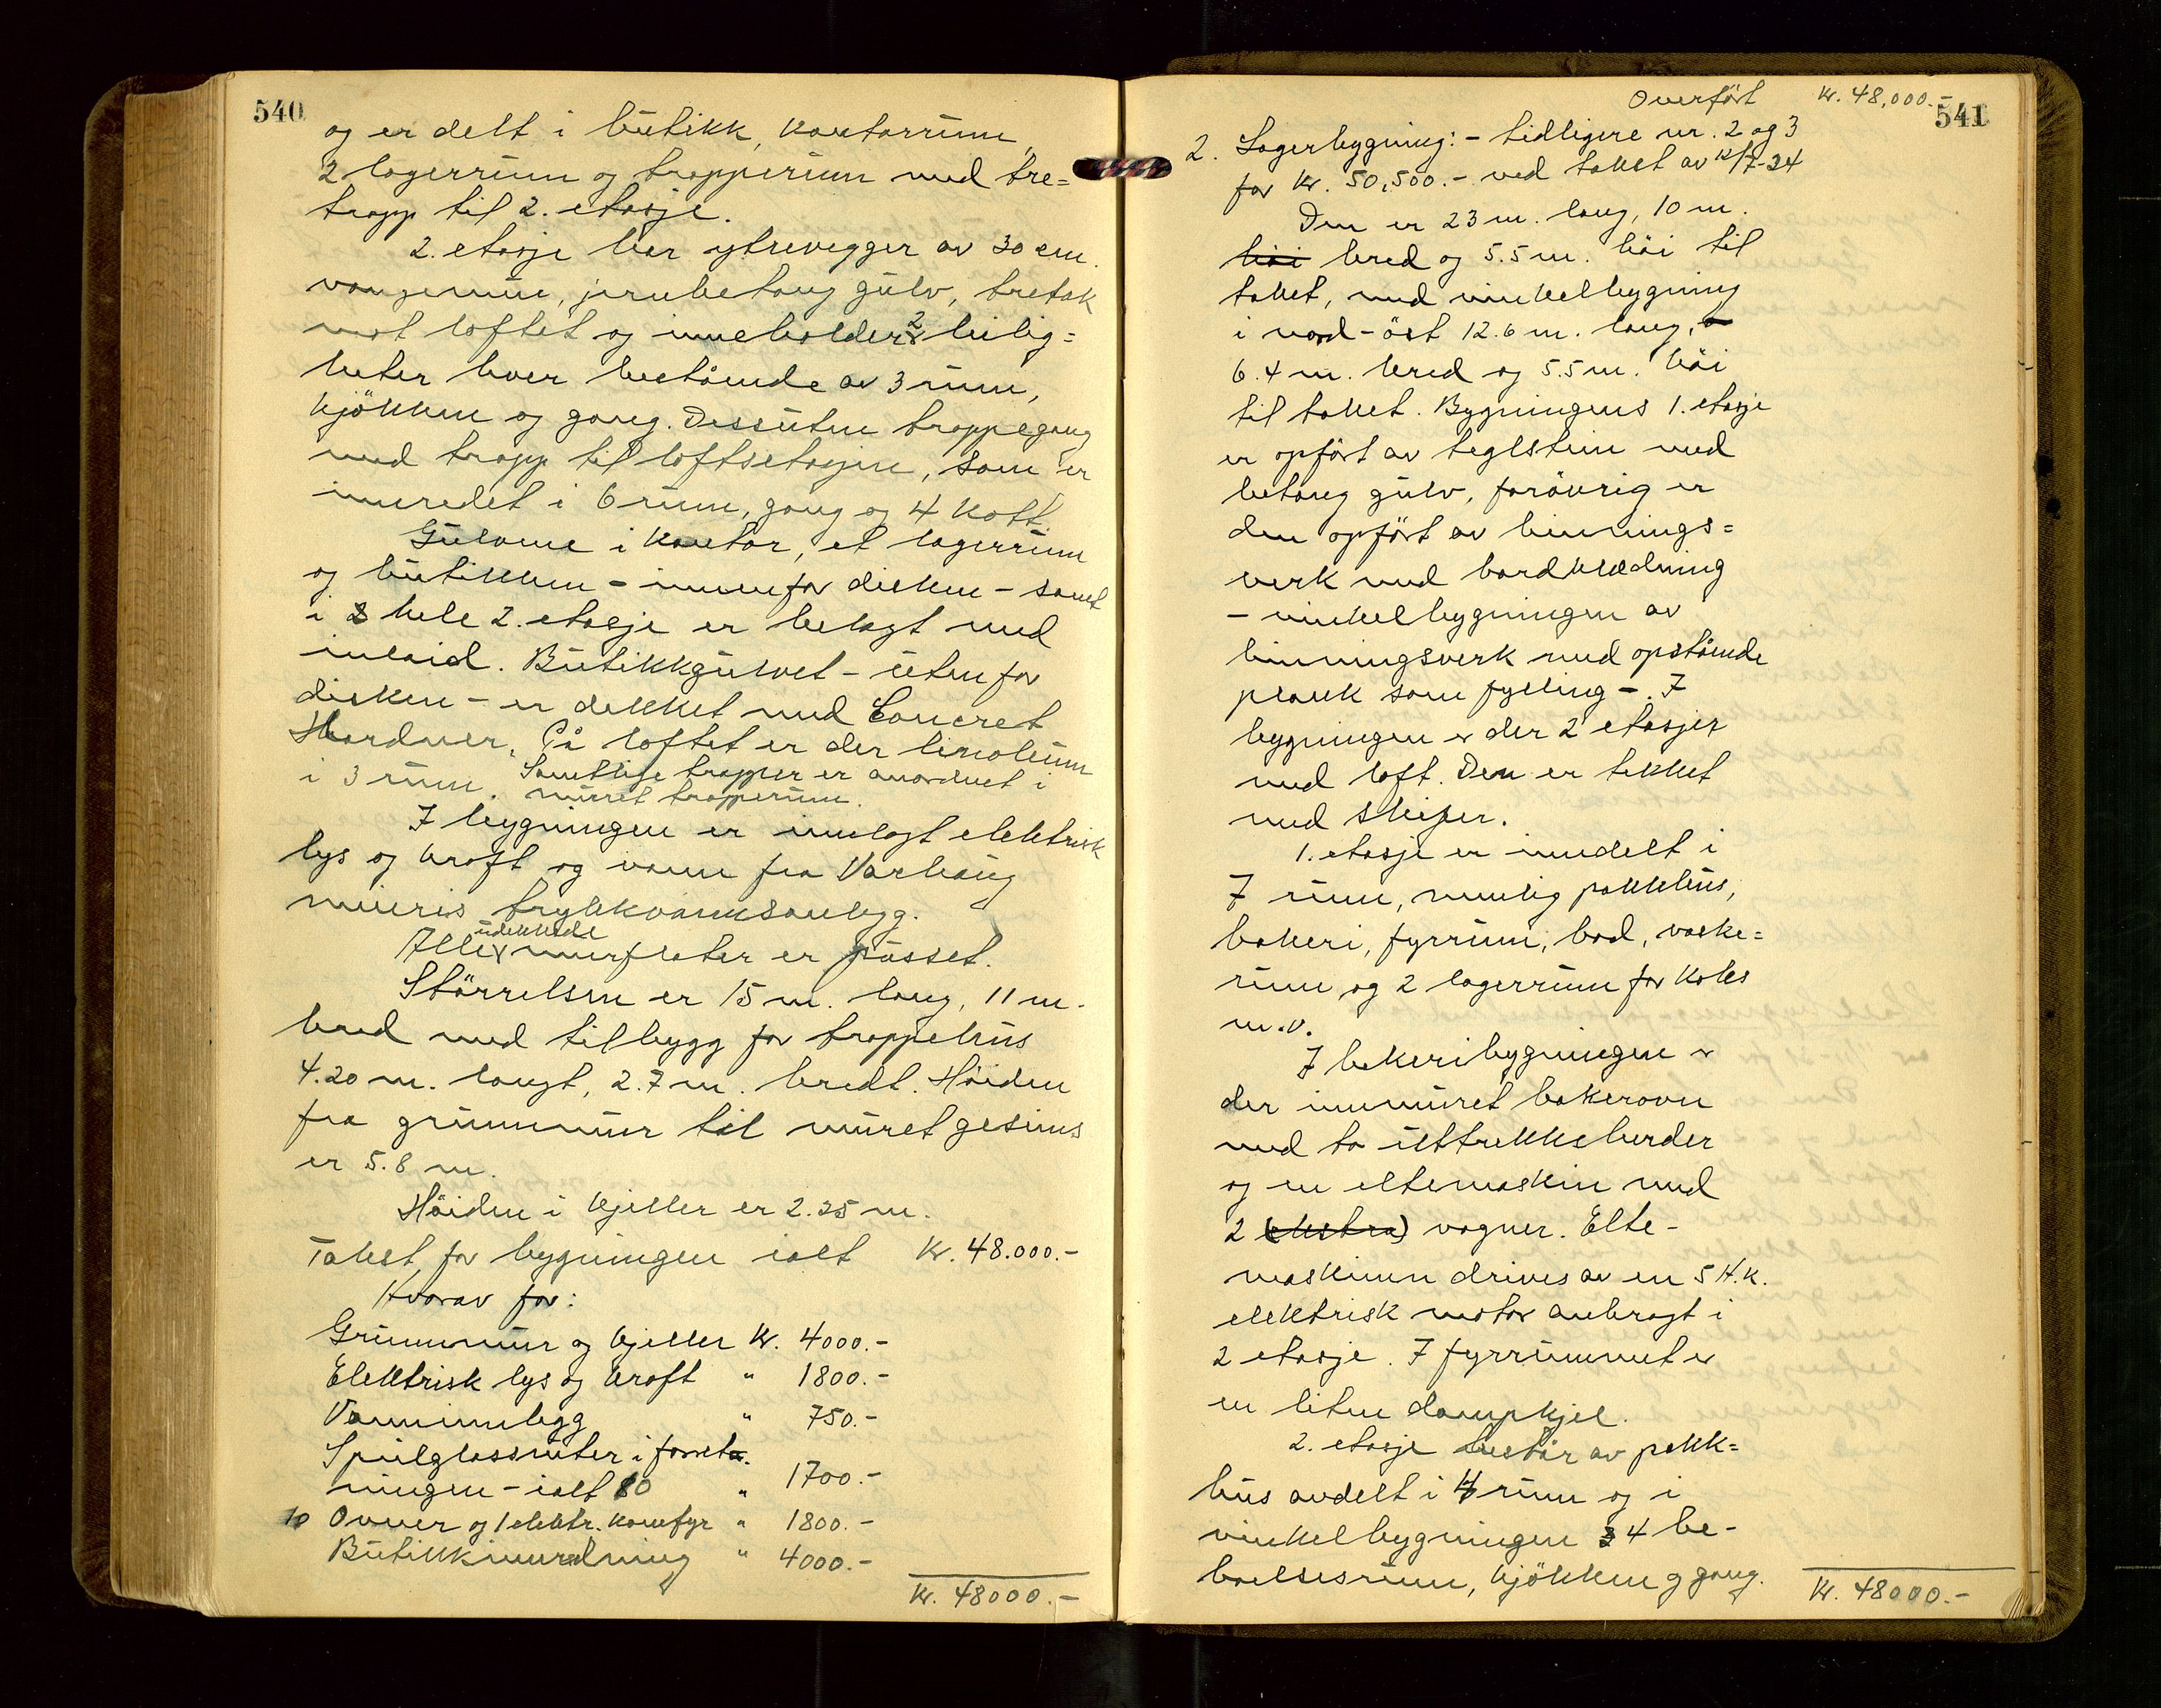 540
og er delt i butikk, kontorrum,
2 lagerrum og trapperum med tre=
trapp til 2. etasje.
2. etasje har yttrevegger av 30 cm.
vangemur, jernbetong gulv, tretak
mot loftet og inneholder 2 leilig=
heter hver bestående av 3 rum,
kjökken og gang. Dessuten trappegang
med trapp til loftsetasjen, som er
innredet i 6 rum, gang og 4 kott.
Gulvene i kontor, et lagerrum
og butikken - innenfor disken - samt
i hele 2. etasje er belagt med
inlaid. Butikkgulvet - utenfor
disken - er dekket med Concret
Hardner. På loftet er der linoleum
i 3 rum. Samtlige trapper er anordnet i
murret trapperum.
I bygningen er innlagt elektrisk
lys og kraft og vann fra Varhaug
meieris trykkvannsanlegg.
udekkede
Alle murflater er pusset.
Störrelsen er 15 m. lang, 11 m.
bred med tilbygg for trappehus
4.20 m. langt, 2.7 m. bredt. Höiden
fra grunnmur til muret gesims
er 5.8 m.
Höiden i kjeller er 2.25 m.
Takst for bygningen ialt Kr. 48.000.-
Hvorav for:
Grunnmur og kjeller Kr. 4000.-
Elektrisk lys og kraft " 1800.-
Vanninnlegg " 750.-
Speilglassruter i forret-
ningen - ialt 10 " 1700.-
10 Ovner og 1 elektr. komfyr " 1800.-
Butikkinnredning " 4000.-
Kr. 48000.-
541
Overfört Kr. 48,000.-
2. Lagerbygning: - tidligere nr. 2 og 3
for Kr. 50,500.- ved takst av 12/7-34
Den er 23 m. lang, 10 m.
höi bred og 5.5 m. höi til
taket, med vinkelbygning
i nord-öst 12.6 m. lang,
6.4 m. bred og 5.5 m. höi
til taket. Bygningens 1. etasje
er opfört av teglstein med
betong gulv, forövrig er
den opfört av binnings=
verk med bordklædning
- vinkelbygningen av
binningsverk med opstående
plank som fylling -. I
bygningen er der 2 etasjer
med loft. Den er tekket
med skifer.
1. etasje er inndelt i
7 rum, nemlig pakkhus,
bakeri, fyrrum, bad, vaske=
rum og 2 lagerrum for koks
m.v.
I bakeribygningen er
der innmuret bakerovn
med to uttrekksherder
og en eltemaskin med
2 (ekstra) vogner. Elte-
maskinen drives av en 5 H.K.
elektrisk motor anbragt i
2 etasje. I fyrrummet er
en liten dampkjel.
2. etasje består av pakk=
hus avdelt i 4 rum og i
vinkelbygningen 4 be-
boelsesrum, kjökken og gang.
Kr. 48000.-